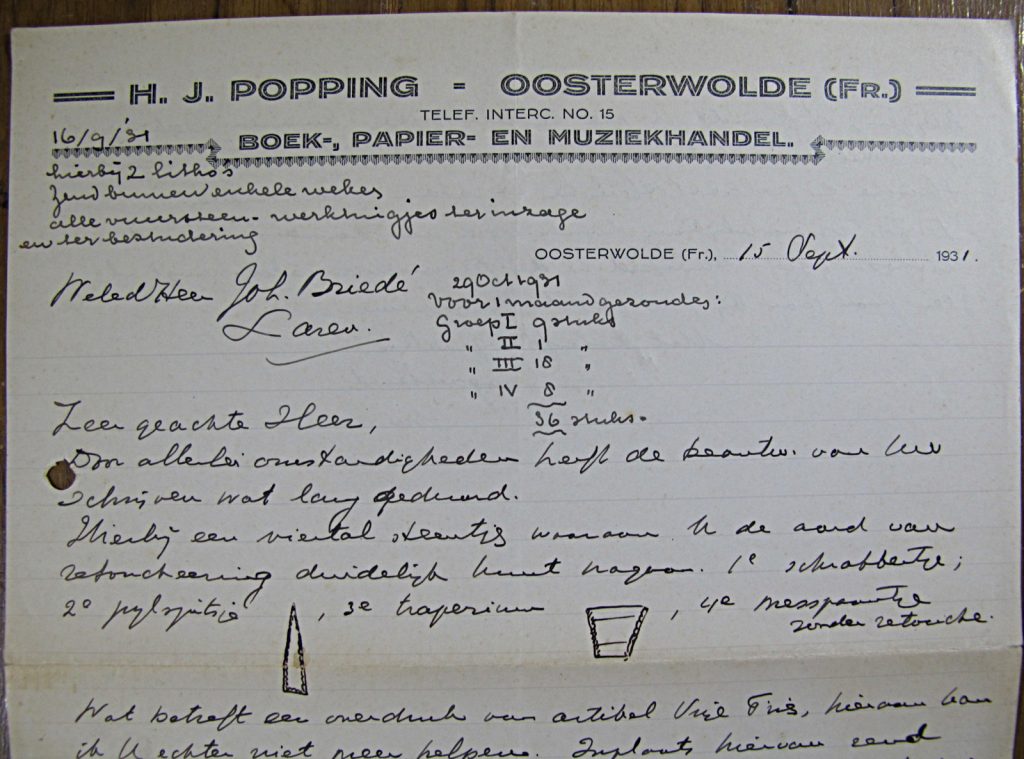 H. J. POPPING - OOSTERWOLDE (FR.)
TELEF. INTERC. NO. 15
BOEK-, PAPIER- EN MUZIEKHANDEL.
16/9/'31
hierbij 2 litho's
Zend binnen enkele weken
alle vuursteen-werktuigjes ter inzage
en ter bestudering
OOSTERWOLDE (Fr.), 15 Sept. 1931.
Weled Heer Joh. Briedé
Laren.
29 Oct 1931
Voor 1 maand gezonden:
Groep I 9 stuks
„ II 1 „
„ III 18 „
„ IV 8 „
36 stuks.
Zeer geachte Heer,
Door allerlei omstandigheden heeft de beantw. van Uw
schrijven wat lang geduurd.
Hierbij een viertal steentjes waaraan U de aard van
retoucheering duidelijk kunt nagaan. 1e schrabbertje;
2e pylspitsje , 3e trapezium , 4e mespuntje
zonder retouche.
Wat betreft een overdruk van artikel Vrije Fries, hieraan kan
ik U echter niet meer helpen. Inplaats hiervan zend